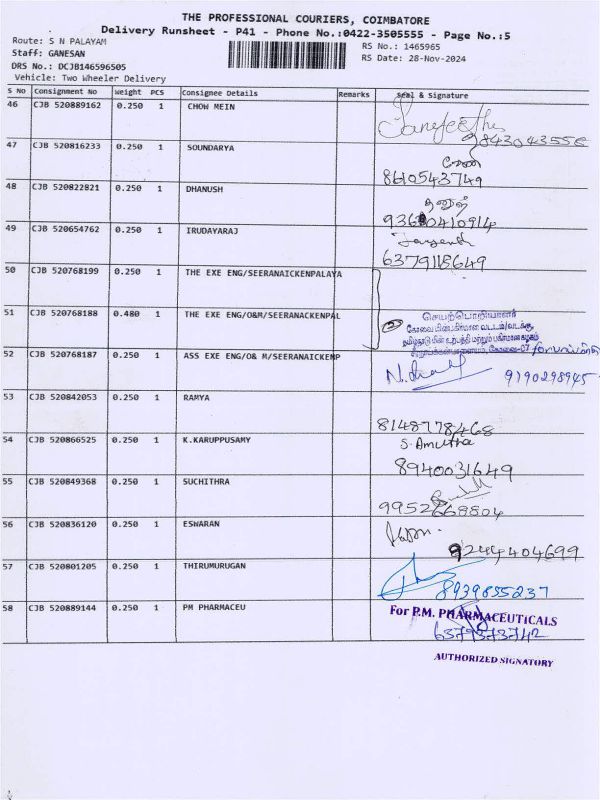 THE PROFESSIONAL COURIERS, COIMBATORE
Delivery Runsheet - P41 - Phone No.:0422-3505555 - Page No.:5
Route: S N PALAYAM
RS No.: 1465965
Staff: GANESAN
RS Date: 28-Nov-2024
DRS No.: DCJB146596505
Vehicle: Two Wheeler Delivery
S No Consignment No Weight PCS Consignee Details Remarks Seal & Signature
46 CJB 520889162 0.250 1 CHOW MEIN
9843043556
47 CJB 520816233 0.250 1 SOUNDARYA
8610543749
48 CJB 520822821 0.250 1 DHANUSH
49 CJB 520654762 0.250 1 IRUDAYARAJ
6379118649
50 CJB 520768199 0.250 1 THE EXE ENG/SEERANAICKENPALAYA
51 CJB 520768188 0.480 1 THE EXE ENG/O&M/SEERANACKENPAL
செயற்பொறியாளர்
52 CJB 520768187 0.250 1 ASS EXE ENG/O& M/SEERANAICKENP
9190298945
53 CJB 520842053 0.250 1 RAMYA
8148778468
54 CJB 520866525 0.250 1 K.KARUPPUSAMY
S. Amutha
8940031649
55 CJB 520849368 0.250 1 SUCHITHRA
9952668804
56 CJB 520836120 0.250 1 ESWARAN
9244404699
57 CJB 520801205 0.250 1 THIRUMURUGAN
8939655237
58 CJB 520889144 0.250 1 PM PHARMACEU
For P.M. PHARMACEUTICALS
6379573742
AUTHORIZED SIGNATORY